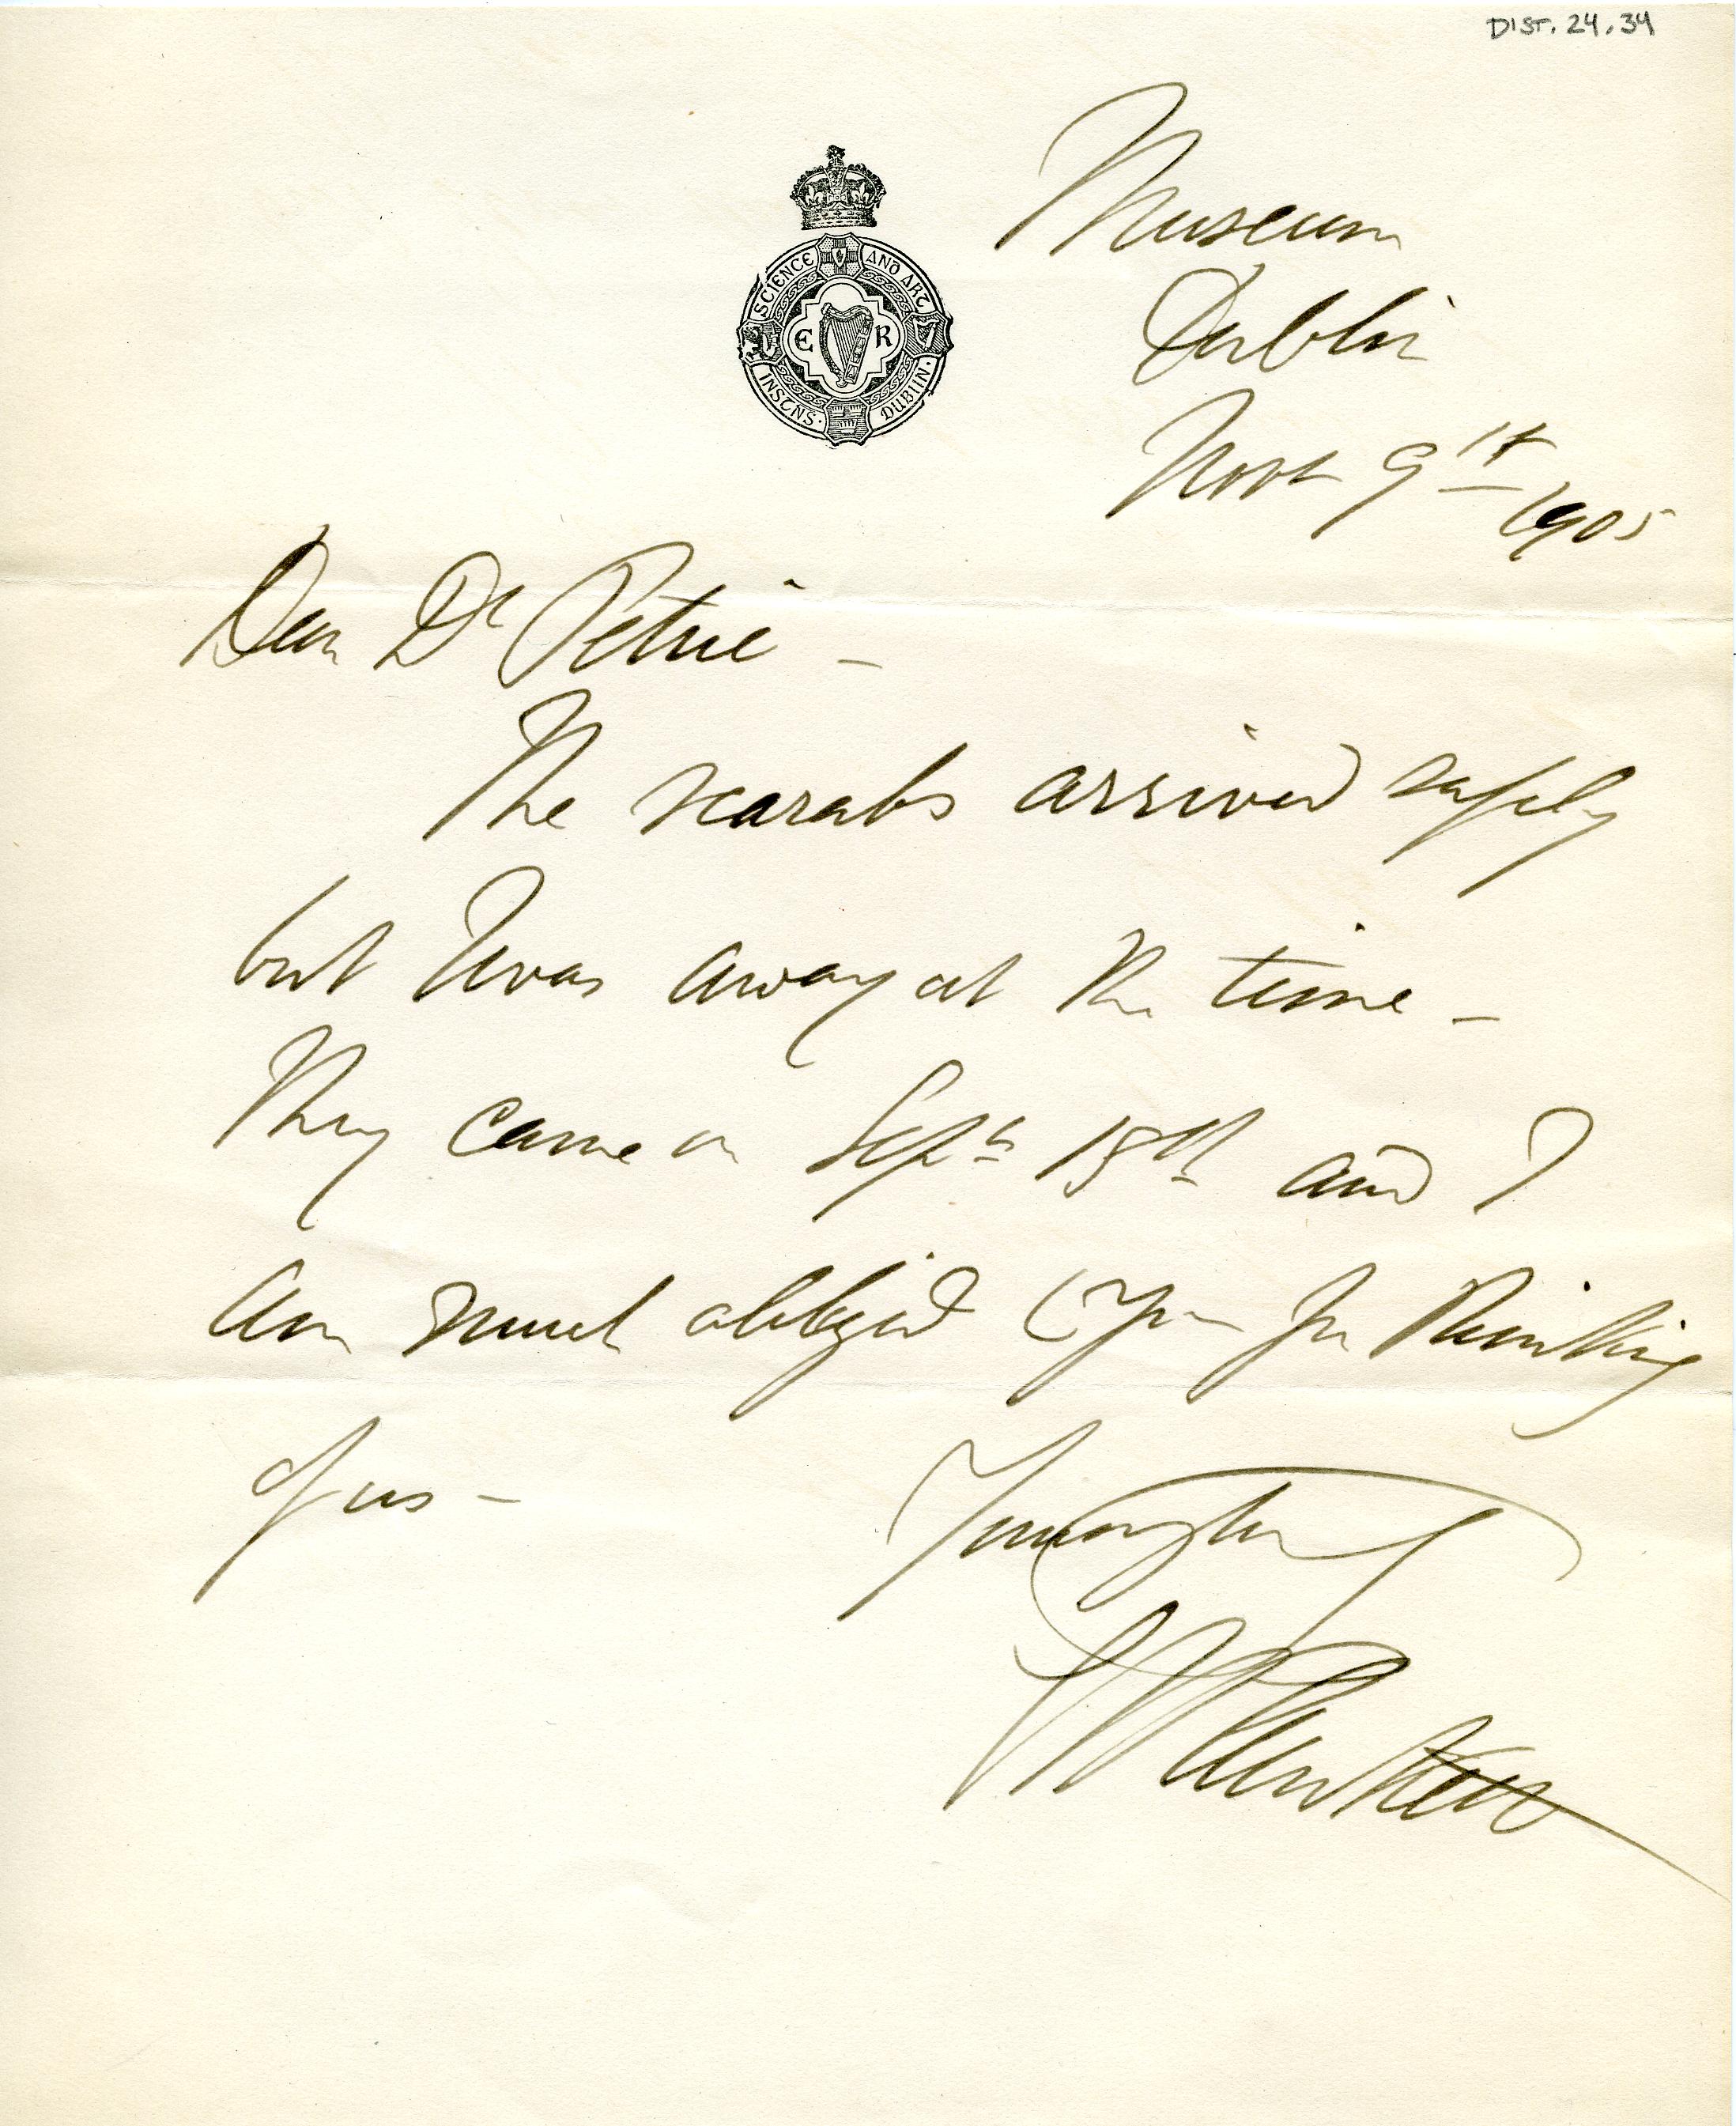 DIST. 24.34
SCIENCE AND ART
E R
INSTNS. DUBLIN.
Museum
Dublin
Novr 9th
1905
Dear Dr Petrie –
The scarabs arrived safely
but I was away at the time –
They came on Sept 15th and I
am much obliged to you for thinking
of us –
Yours truly